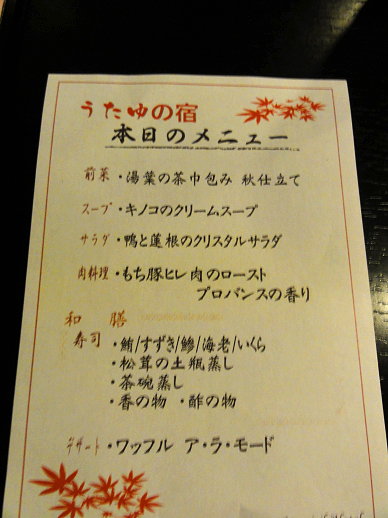 うたゆの宿
本日のメニュー
前菜 ・湯葉の茶巾包み 秋仕立て
スープ ・キノコのクリームスープ
サラダ ・鴨と蓮根のクリスタルサラダ
肉料理 ・もち豚ヒレ肉のロースト
プロバンスの香り
和膳
寿司 ・鮪/すずき/鯵/海老/いくら
・松茸の土瓶蒸し
・茶碗蒸し
・香の物 ・酢の物
デザート ・ワッフル ア・ラ・モード